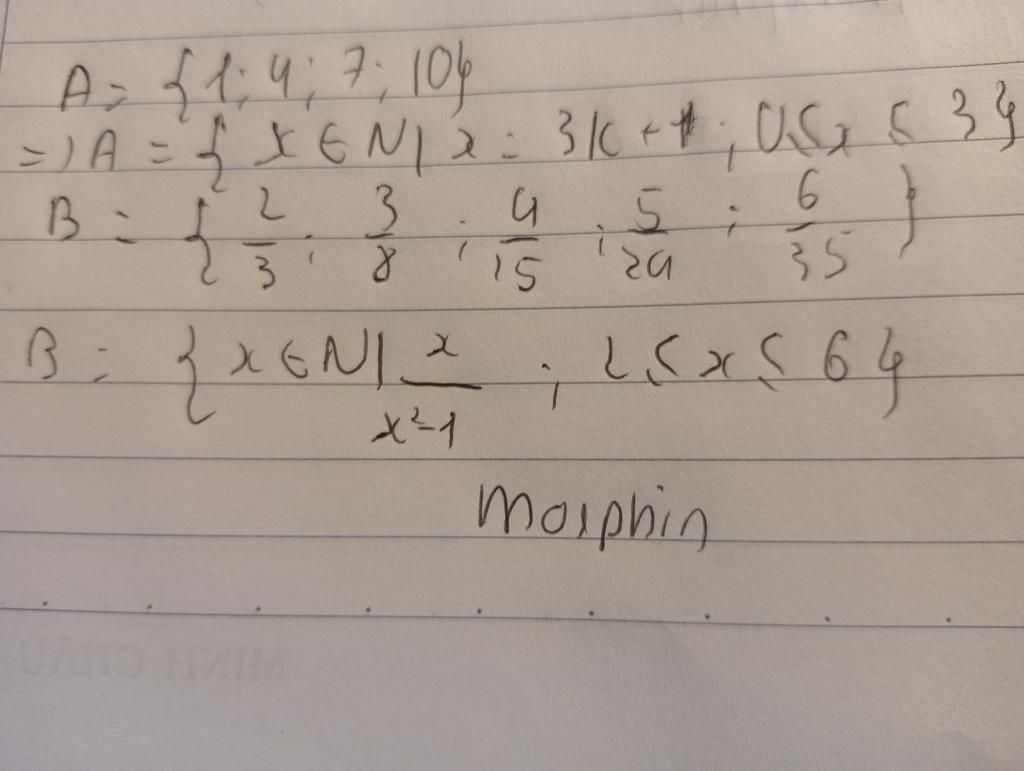 A = {1; 4; 7; 10}
=) A = { x ∈ N | x = 3k + 1 ; 0 ≤ x ≤ 3}
B = { 2/3 ; 3/8 ; 4/15 ; 5/24 ; 6/35 }
B = { x ∈ N | x/(x²-1) ; 2 ≤ x ≤ 6}
Morphin
MINH CHÂU